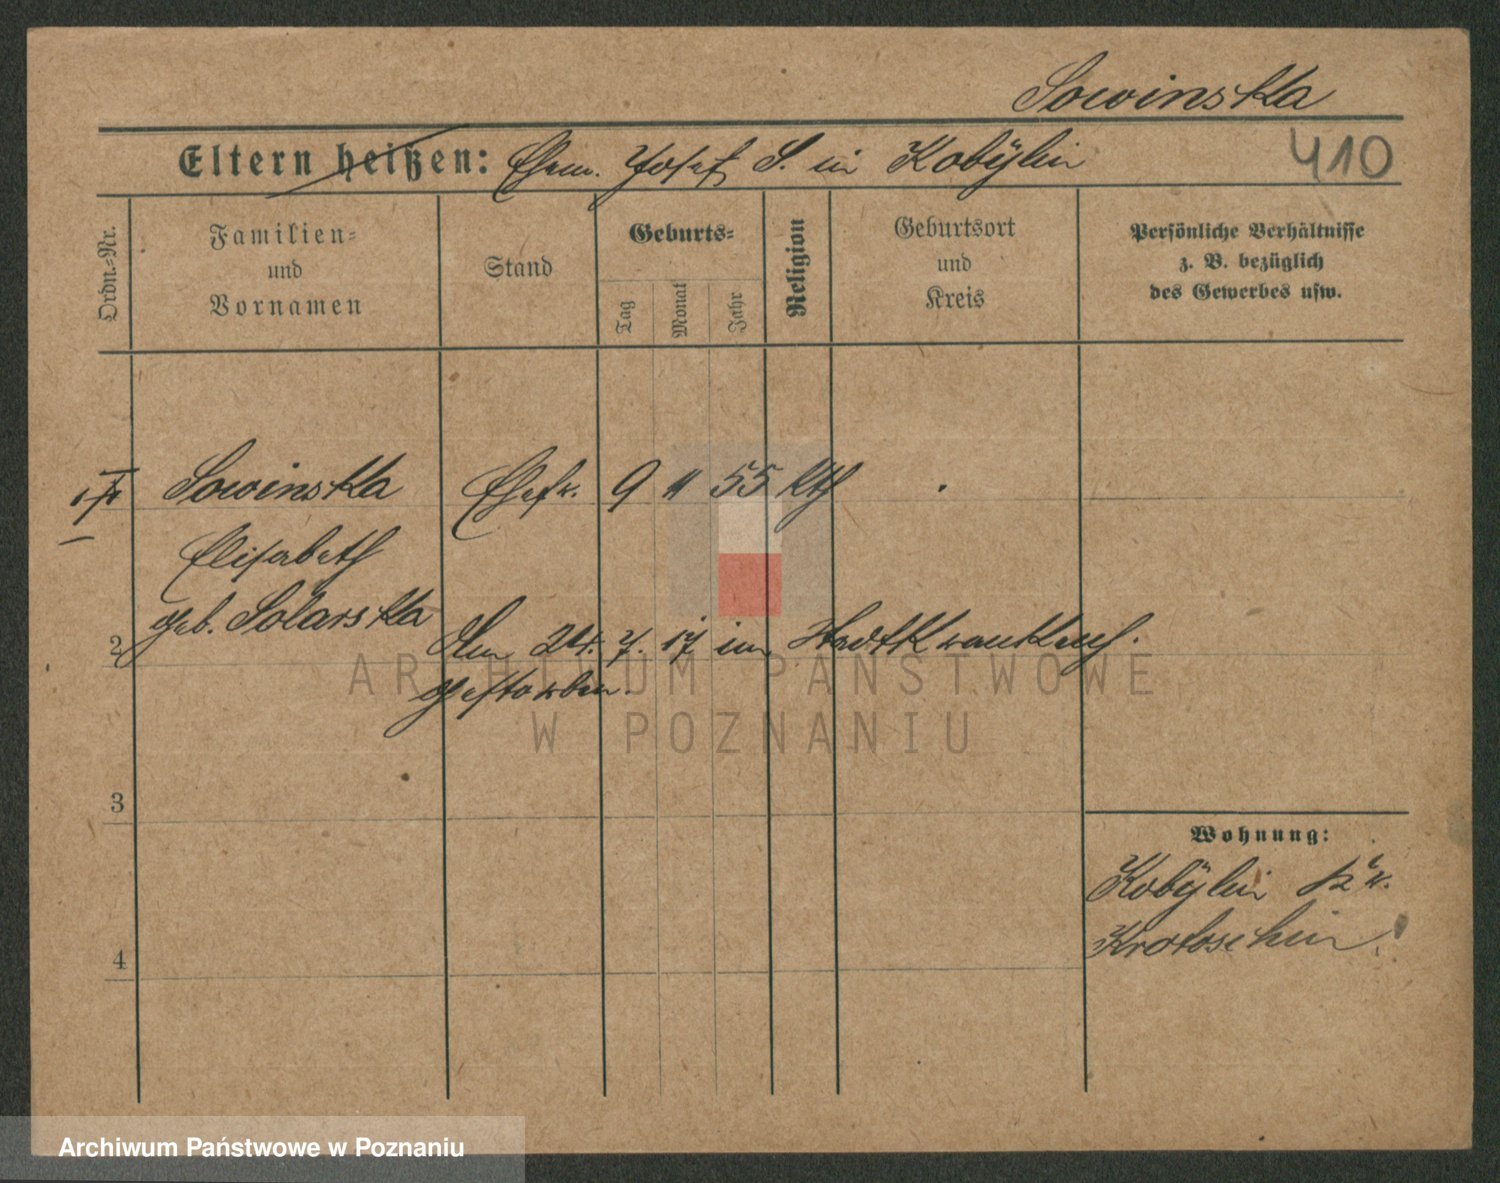 Sowinska
Eltern heißen: Ehem. Josef S. in Kobÿlin
410
Ordn.-Nr.
Familien-
und
Vornamen
Stand
Geburts-
Tag
Monat
Jahr
Religion
Geburtsort
und
Kreis
Persönliche Verhältnisse
z. B. bezüglich
des Gewerbes usw.
Sowinska Ehefr. 9 11 55 kth
Elisabeth
geb. Solarska
2
Am 24. 7. 17 im Stadtkrankenh.
gestorben.
3
4
Wohnung:
Kobÿlin Kr.
Krotoschin.
ARCHIWUM PAŃSTWOWE
W POZNANIU
Archiwum Państwowe w Poznaniu